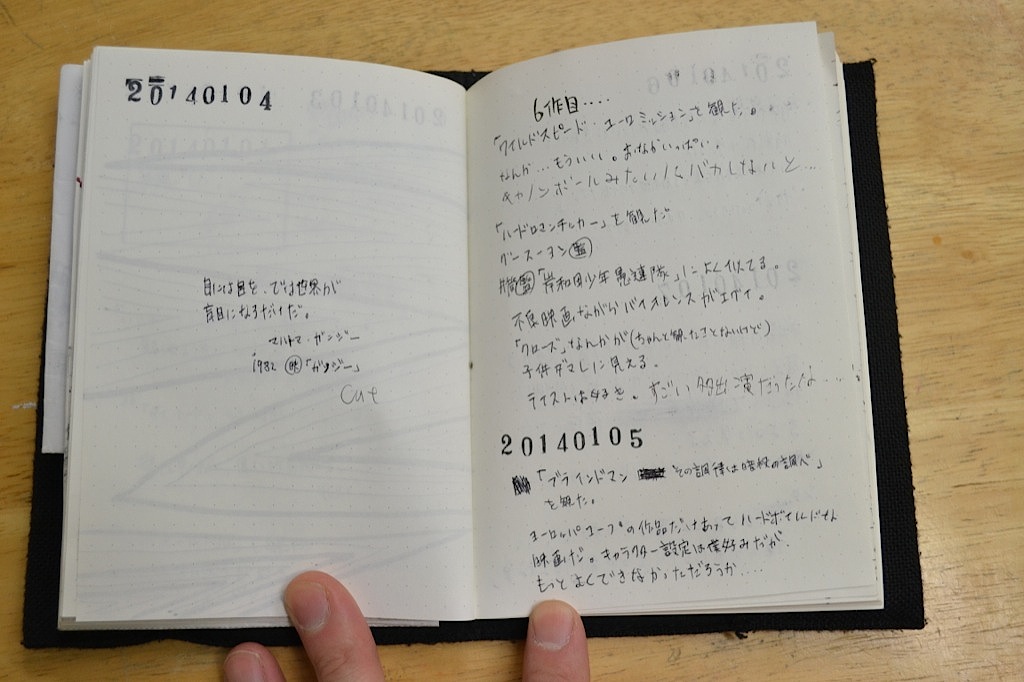 20140104
目には目を、では世界が
盲目になるだけだ。
マハトマ・ガンジー
1982 映「ガンジー」
Cut
6作目‥‥
「ワイルドスピード・ユーロミッション」を観た。
なんか…もういい。おなかいっぱい。
キャノンボールみたいにバカしないと…
「ハードロマンチッカー」を観た
グースーヨン 監
「岸和田少年愚連隊」によく似てる。
不良映画ながらバイオレンスがエグイ。
「クローズ」なんかが(ちゃんと観たことないけど)
子供ダマしに見える。
テイストは好き。すごい 出演だったな…
20140105
「ブラインドマン その調律は暗殺の調べ」
を観た。
ヨーロッパコープの作品だけあってハードボイルドな
映画だ。キャラクター設定は僕好みだが、
もっとよくできなかっただろうか‥‥